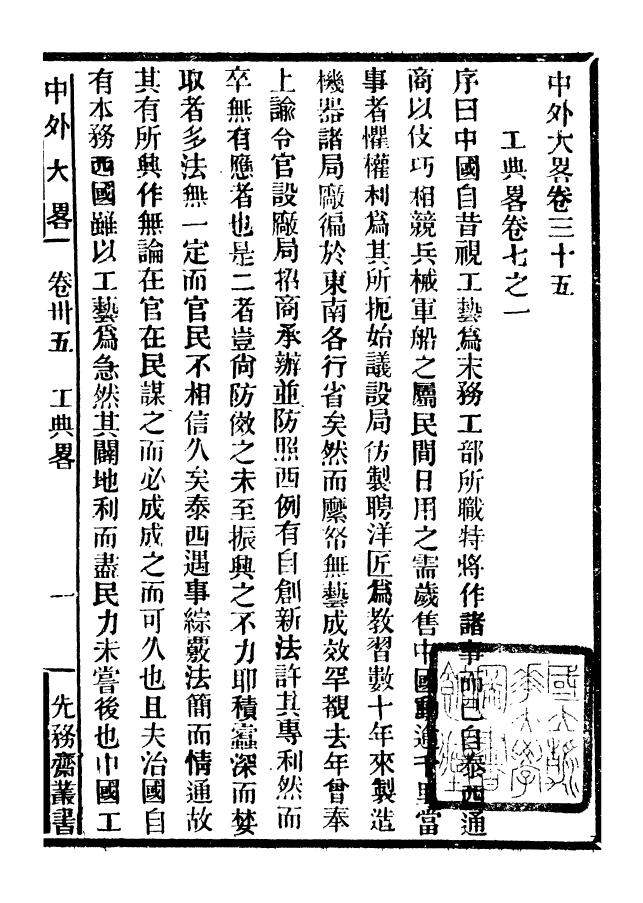 中外大畧卷三十五
工典畧卷七之一
序曰中國自昔視工藝爲末務工部所職特將作諸事而已自泰西通
商以伎巧相競兵械軍船之屬民間日用之需歲售中國動逾千里當
事者懼權利爲其所扼始議設局仿製聘洋匠爲教習數十年來製造
機器諸局廠徧於東南各行省矣然而縻帑無藝成效罕覩去年曾奉
上諭令官設廠局招商承辦並防照西例有自創新法許其專利然而
卒無有應者也是二者豈尙防倣之未至振興之不力耶積蠧深而婪
取者多法無一定而官民不相信久矣泰西遇事綜覈法簡而情通故
其有所興作無論在官在民謀之而必成成之而可久也且夫冶國自
有本務西國雖以工藝爲急然其闢地利而盡民力未嘗後也中國工
中外大畧 卷卅五 工典畧 一 先務齋叢書
國立 大學 圖書